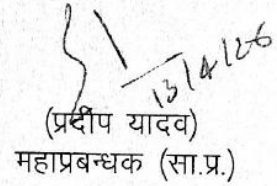 13/4/26
(प्रदीप यादव)
महाप्रबन्धक (सा.प्र.)